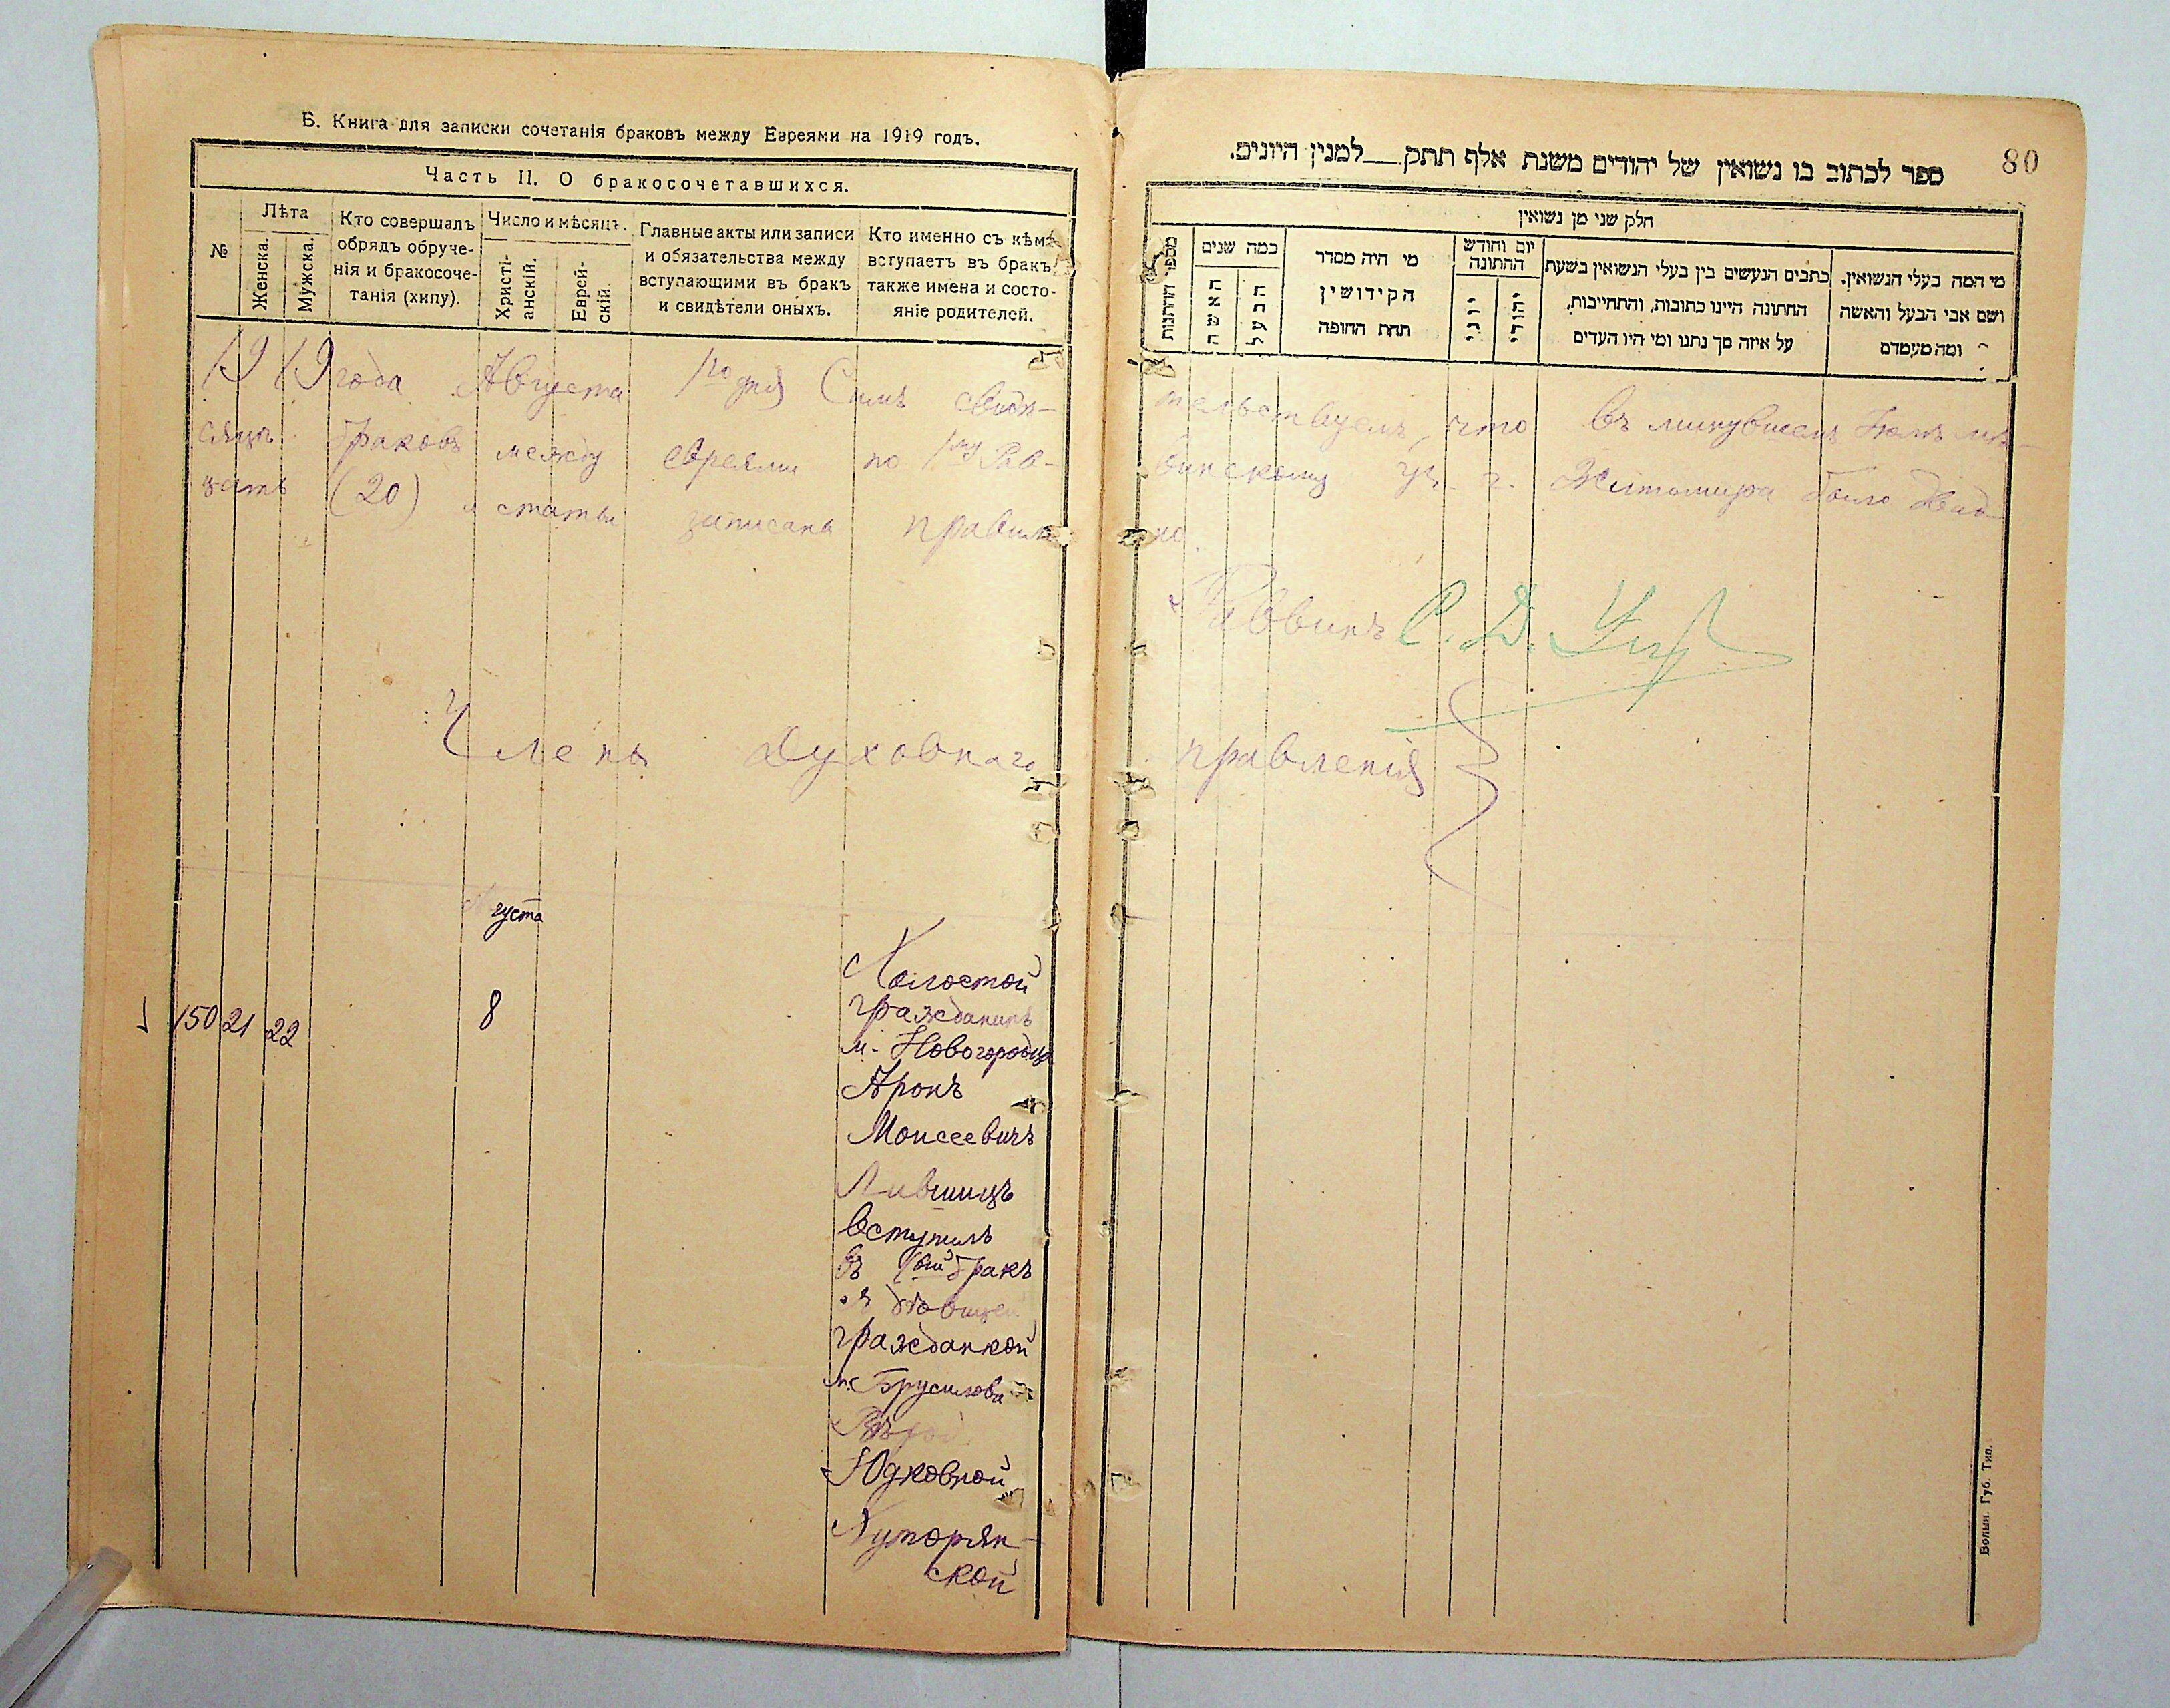 Б. Книга для записки сочетанія браковъ между Евреями на 1919 годъ.
Часть II. О бракосочетавшихся.
№
Лѣта
Женска.
Мужска.
Кто совершалъ
обрядъ обруче-
нія и бракосоче-
танія (хипу).
Число и мѣсяцъ.
Христі-
анскій.
Еврей-
скій.
Главные акты или записи
и обязательства между
вступающими въ бракъ
и свидѣтели оныхъ.
Кто именно съ кѣмъ
вступаетъ въ бракъ,
также имена и состо-
яніе родителей.
1919 года Августа 1го дня Симъ свидѣ-
сяцѣ браковъ между евреями по 1му Рав-
цать (20) и статьи записаны правиль-
Члены Духовнаго
густа
150 21 22 8
Холостой
гражданинъ
м. Новогородца
Аронъ
Моисеевичъ
Лившицъ
вступилъ
въ 1ый бракъ
съ дѣвицей
гражданкой
м. Брусилова
Юдковной
Хуторян-
ской
80
ספר לכתוב בו נשואין של יהודים משנת אלף תתק__למנין היונים.
חלק שני מן נשואין
מספר החתונות
כמה שנים
האשה
הבעל
מי היה מסדר
הקידושין
תחת החופה
יום וחודש
החתונה
יוני
יהודי
כתבים הנעשים בין בעלי הנשואין בשעת
החתונה היינו כתובות, והתחייבות,
על איזה סך נתנו ומי היו העדים
מי המה בעלי הנשואין.
ושם אבי הבעל והאשה
ומה מעמדם
тельствуемъ, что въ минувшемъ Іюлѣ мѣ-
винскому уч. г. Житомира было двад-
но.
Раввинъ
правленія
Волын. Губ. Тип.